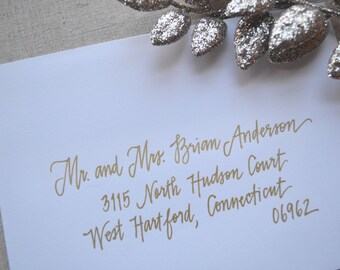 Mr. and Mrs. Brian Anderson
3115 North Hudson Court
West Hartford, Connecticut
06962